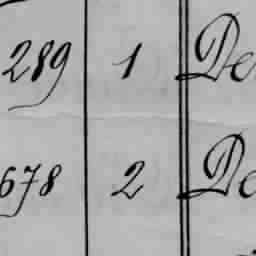 289 1 De
678 2 De